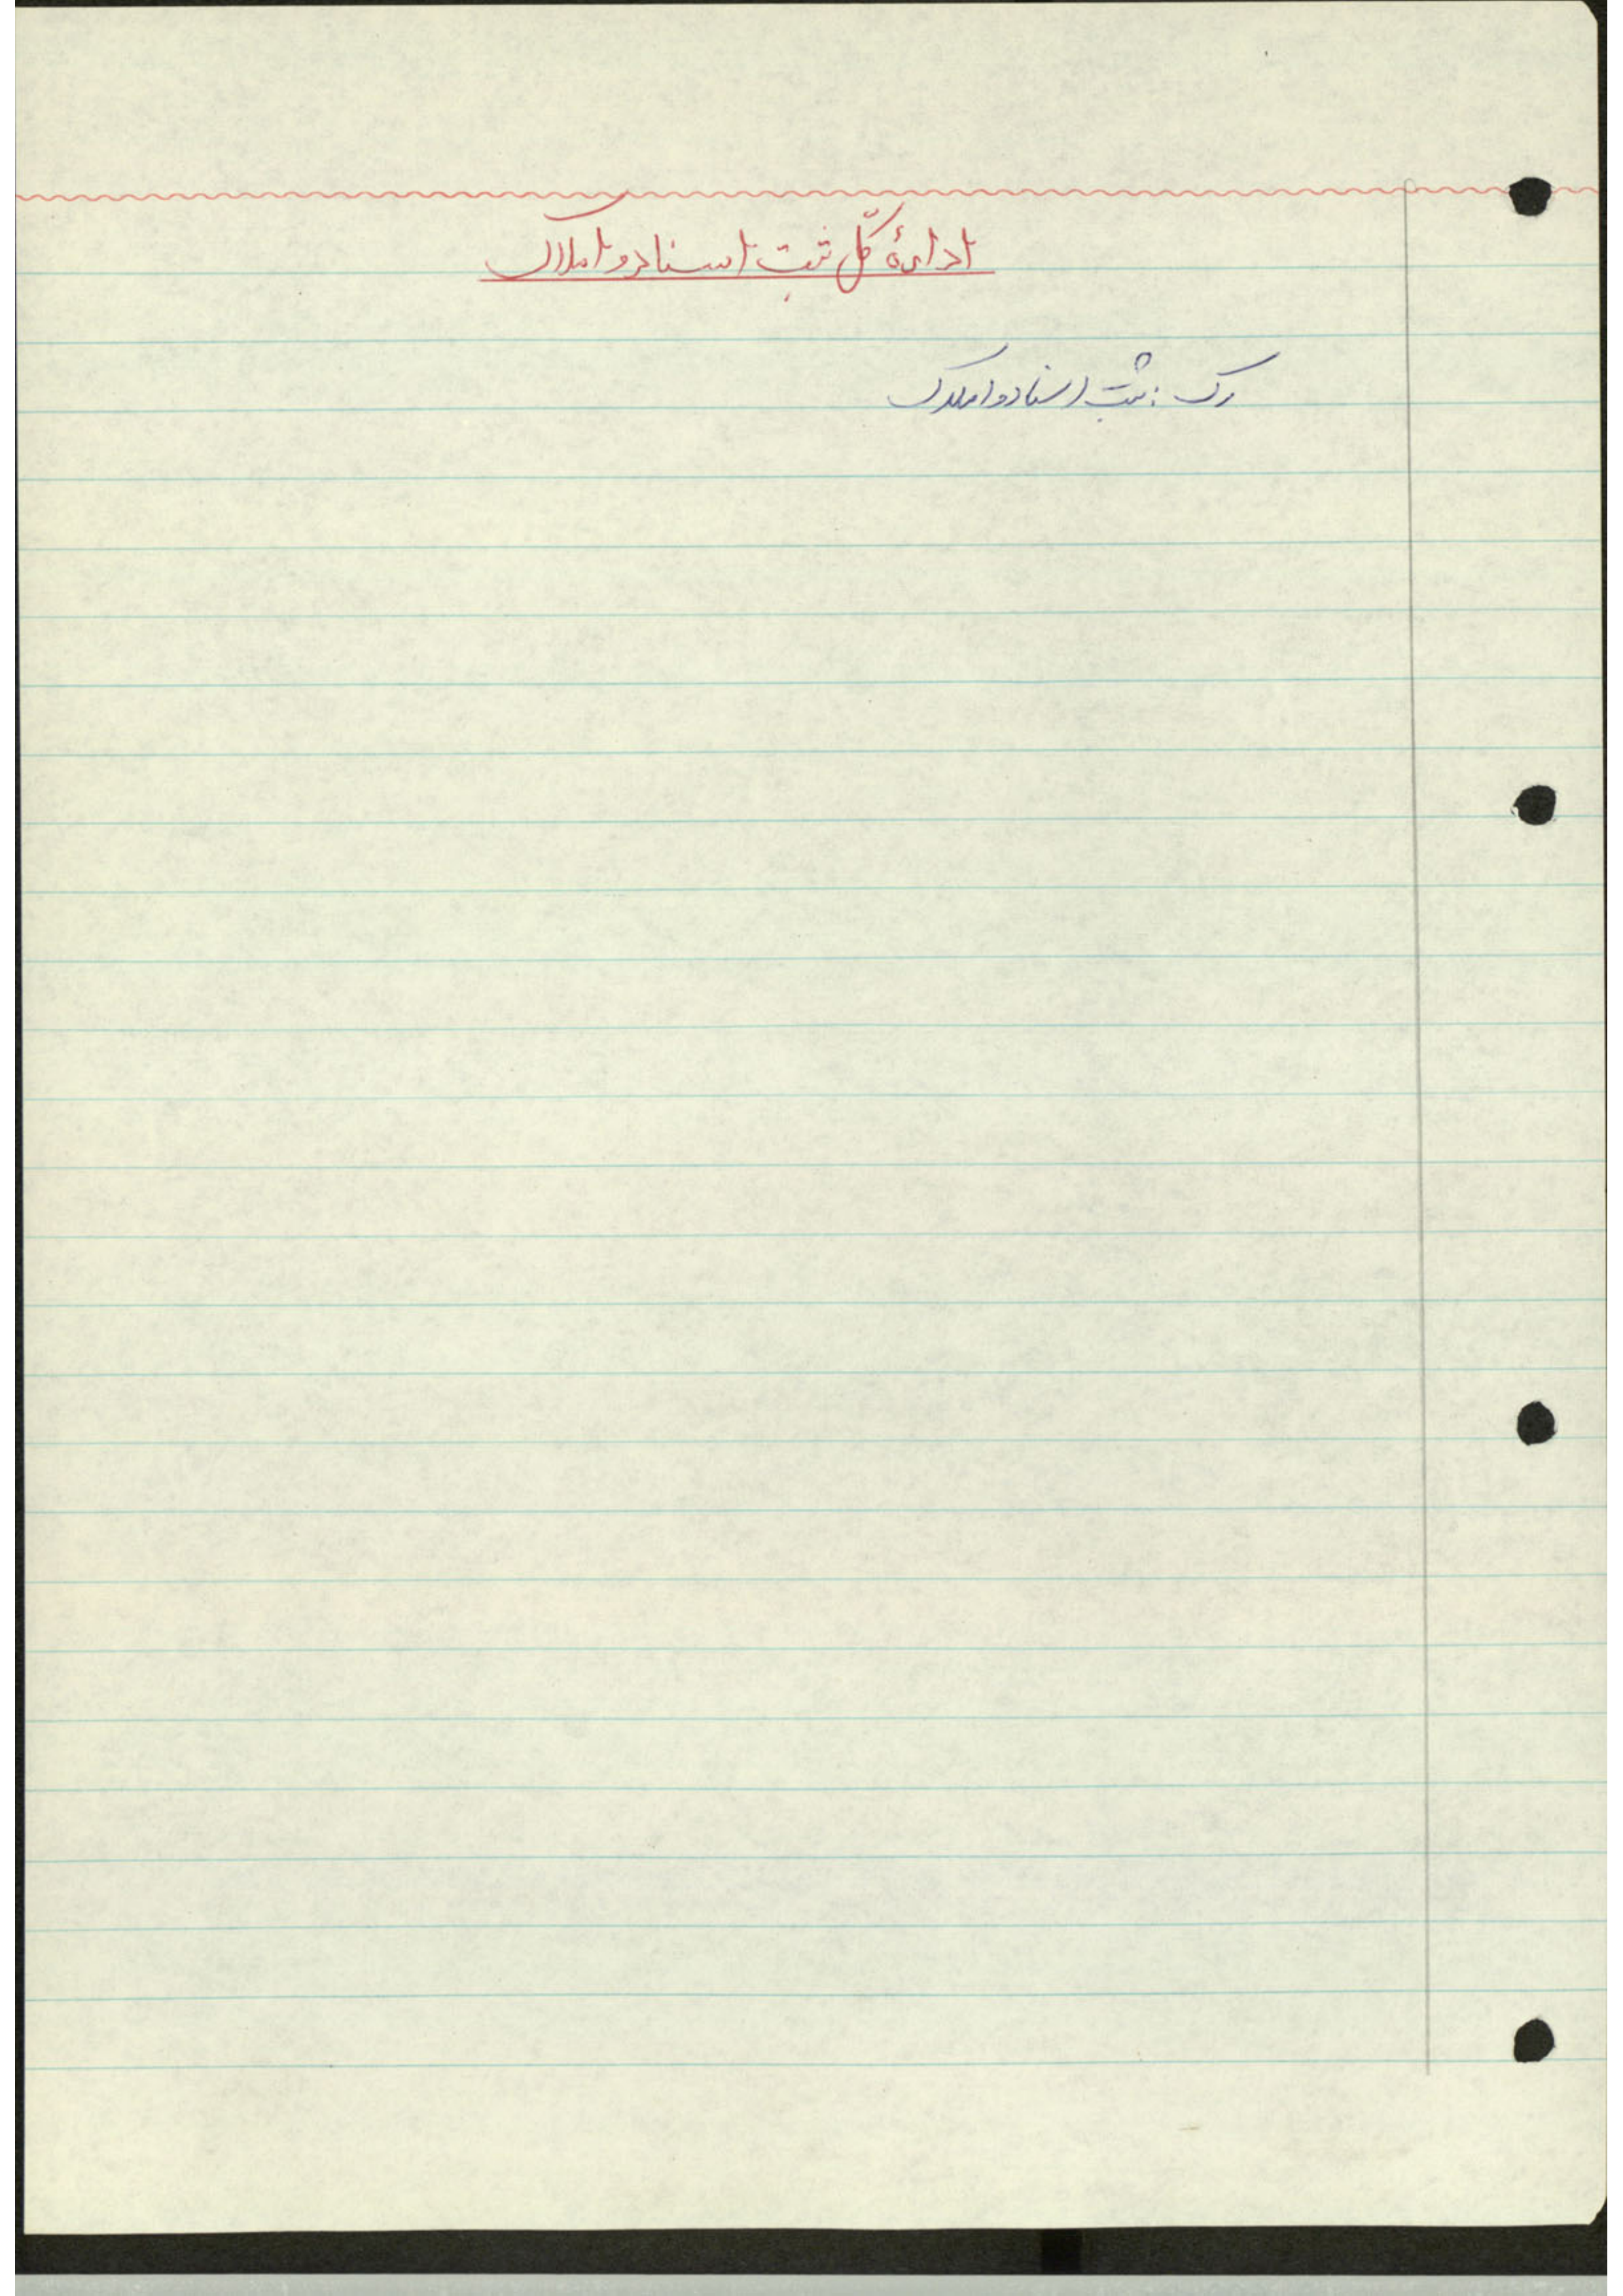 ادارهٔ کلّ ثبت اسناد و املاک
رک : ثبت اسناد و املاک